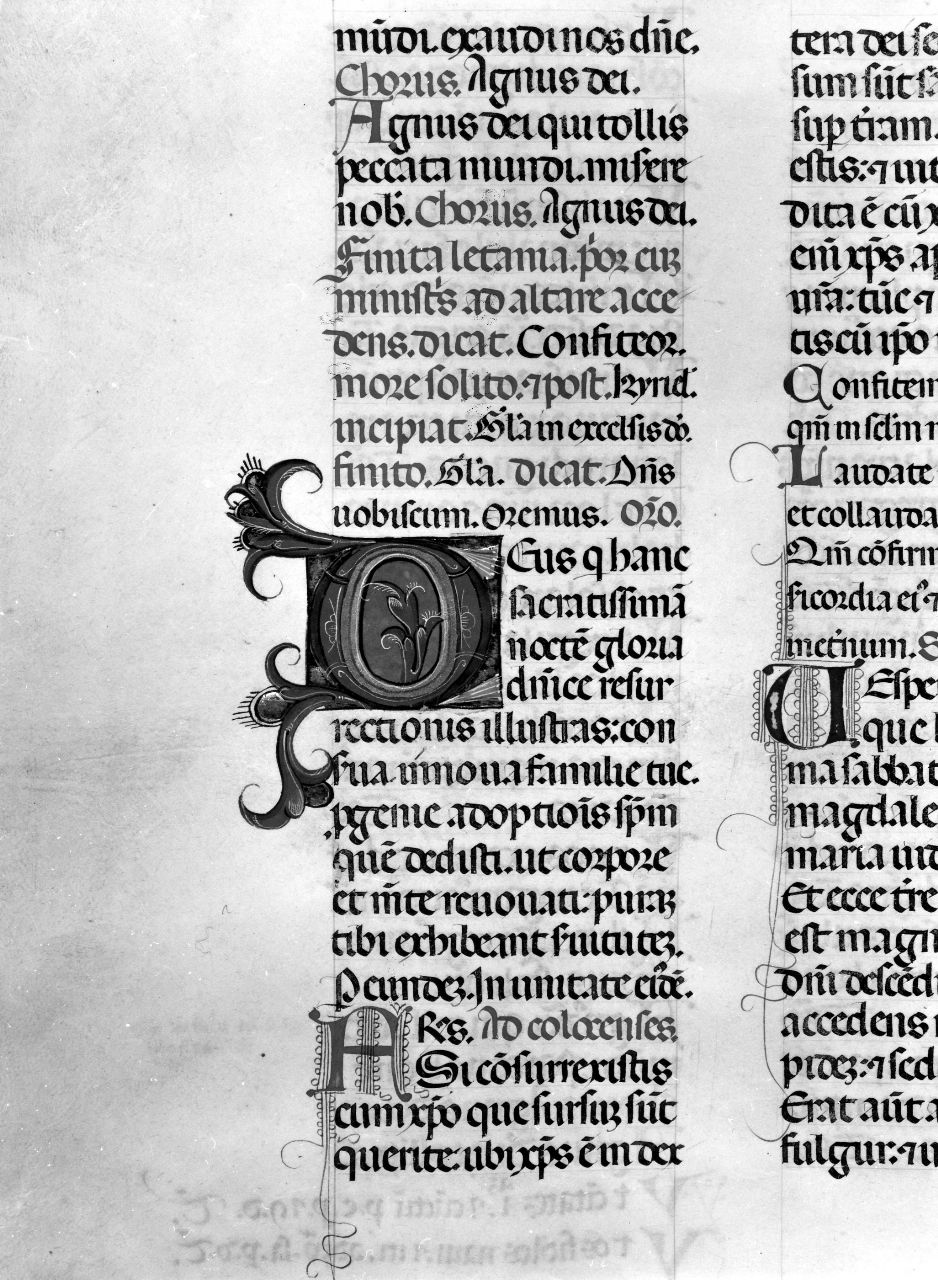 mūdi. exaudi nos dn̄e.
Chorus. Agnus dei.
Agnus dei qui tollis
peccata mundi. misere
nob̄. Chorus. Agnus dei.
Finita letania. p̄or cuꝫ
minist̄s ad altare acce
dens. dicat. Confiteor.
more solito. ⁊ post. kyriel̄.
incipiat. Gl̄a in excelsis dō.
finito. Gl̄a. dicat. Dn̄s
uobiscum. Oremus. Or̄o.
DEus q hanc
sacratissimā
noctē gloria
dn̄ice resur
rectionis illustras: con
s̄ua in noua familie tue.
ꝓgenie adoptiōis sp̄m
quē dedisti. ut corpore
et m̄te renouati: puraꝫ
tibi exhibeant s̄uituteꝫ.
P eundeꝫ. In unitate eiꝰdē.
FRēs. Ad colocenses.
Si cōsurrexistis
cum xp̄o que sursuꝫ sūt
querite: ubi xp̄s ē in dex
tera dei se
sum sūt
sup t̄ram.
estis: ⁊ uit
dita ē cū x
cū xp̄s ap
ur̄a: tūc ⁊
tis cū ip̄o
Confitem
qm̄ in sc̄lm
Laudate
et collauda
Qm̄ cōfirm
sicordia eiꝰ ⁊
met̄num. S
UEspe
que
ma sabbat
magdale
maria
Et ecce t̄re
est magn
dn̄i descēd
accedens
pideꝫ: ⁊ sed
Erat aūt a
fulgur: ⁊